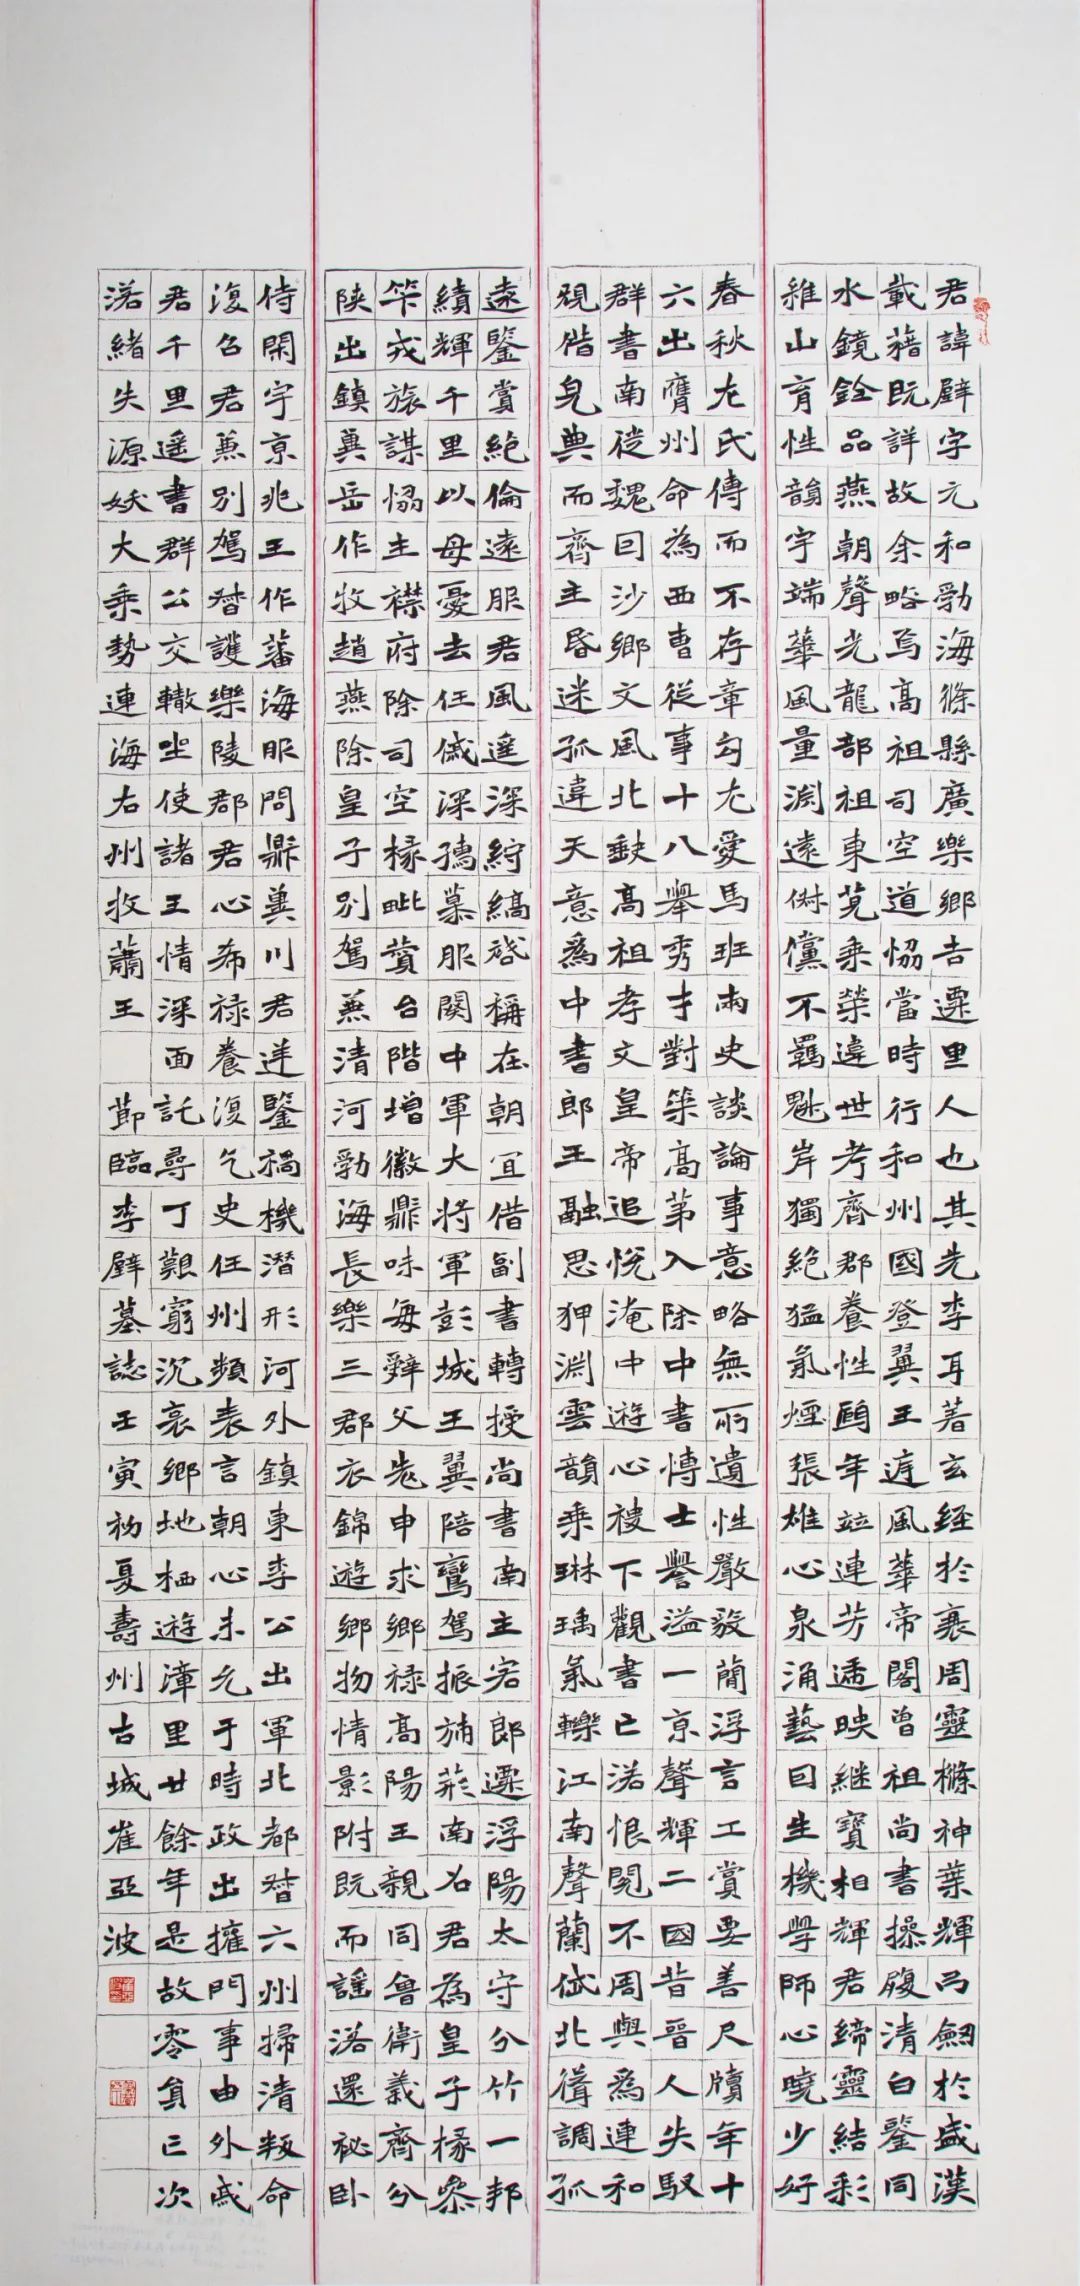 君諱璧字元和勃海條縣廣樂鄉吉遷里人也其先李耳著玄經於衰周靈櫛神葉輝弓劒於盛漢
載藉既詳故余略焉高祖司空道協當時行和州國登翼王庭風華帝閣曾祖尚書操履清白鑒同
水鏡銓品燕朝聲光龍部祖東莞乘榮違世考齊郡養性頤年竝連芳遞映繼寶相輝君締靈結彩
維山育性韻宇端華風量淵遠倜儻不羈魁岸獨絕猛氣煙張雄心泉涌藝因生機學師心曉少好
春秋左氏傳而不存章句尤愛馬班兩史談論事意略無所遺性嚴毅簡浮言工賞要善尺牘年十
六出膺州命為西曹從事十八舉秀才對策高第入除中書博士譽溢一京聲輝二國昔晉人失馭
群書南徙魏因沙鄉文風北缺高祖孝文皇帝追悅淹中遊心稷下觀書亡落恨閱不周與為連和
規借完典而齊主昏迷孤違天意為中書郎王融思狎淵雲韻乘琳瑀氣轢江南聲蘭岱北聳調孤
遠鑒賞絕倫遠服君風遙深紵縞啓稱在朝宜借副書轉授尚書南主客郎遷浮陽太守分竹一邦
績輝千里以母憂去任戚深孺慕服闋中軍大將軍彭城王翼陪鑾駕振旆荊南召君為皇子掾參
竿戎旅謀協主襟府除司空掾毗贊台階增徽鼎味每辭父老申求鄉祿高陽王親同魯衛義齊分
陝出鎮冀岳作牧趙燕除皇子別駕兼清河勃海長樂三郡衣錦遊鄉物情影附既而謠落還祕卧
侍閑宇京兆王作蕃海服問鼎冀川君逆鑒禍機潛形河外鎮東李公出軍北都督六州掃清叛命
復召君兼別駕督護樂陵郡君心希祿養復乞史任州頻表言朝心未允于時政出擁門事由外戚
君千里遥書群公交轍坐使諸王情深面託尋丁艱窮沉哀鄉地栖遊漳里廿餘年是故零員三次
落緒失源妖大乘勢連海右州牧蕭王 節臨李璧墓誌壬寅初夏壽州古城崔亞波